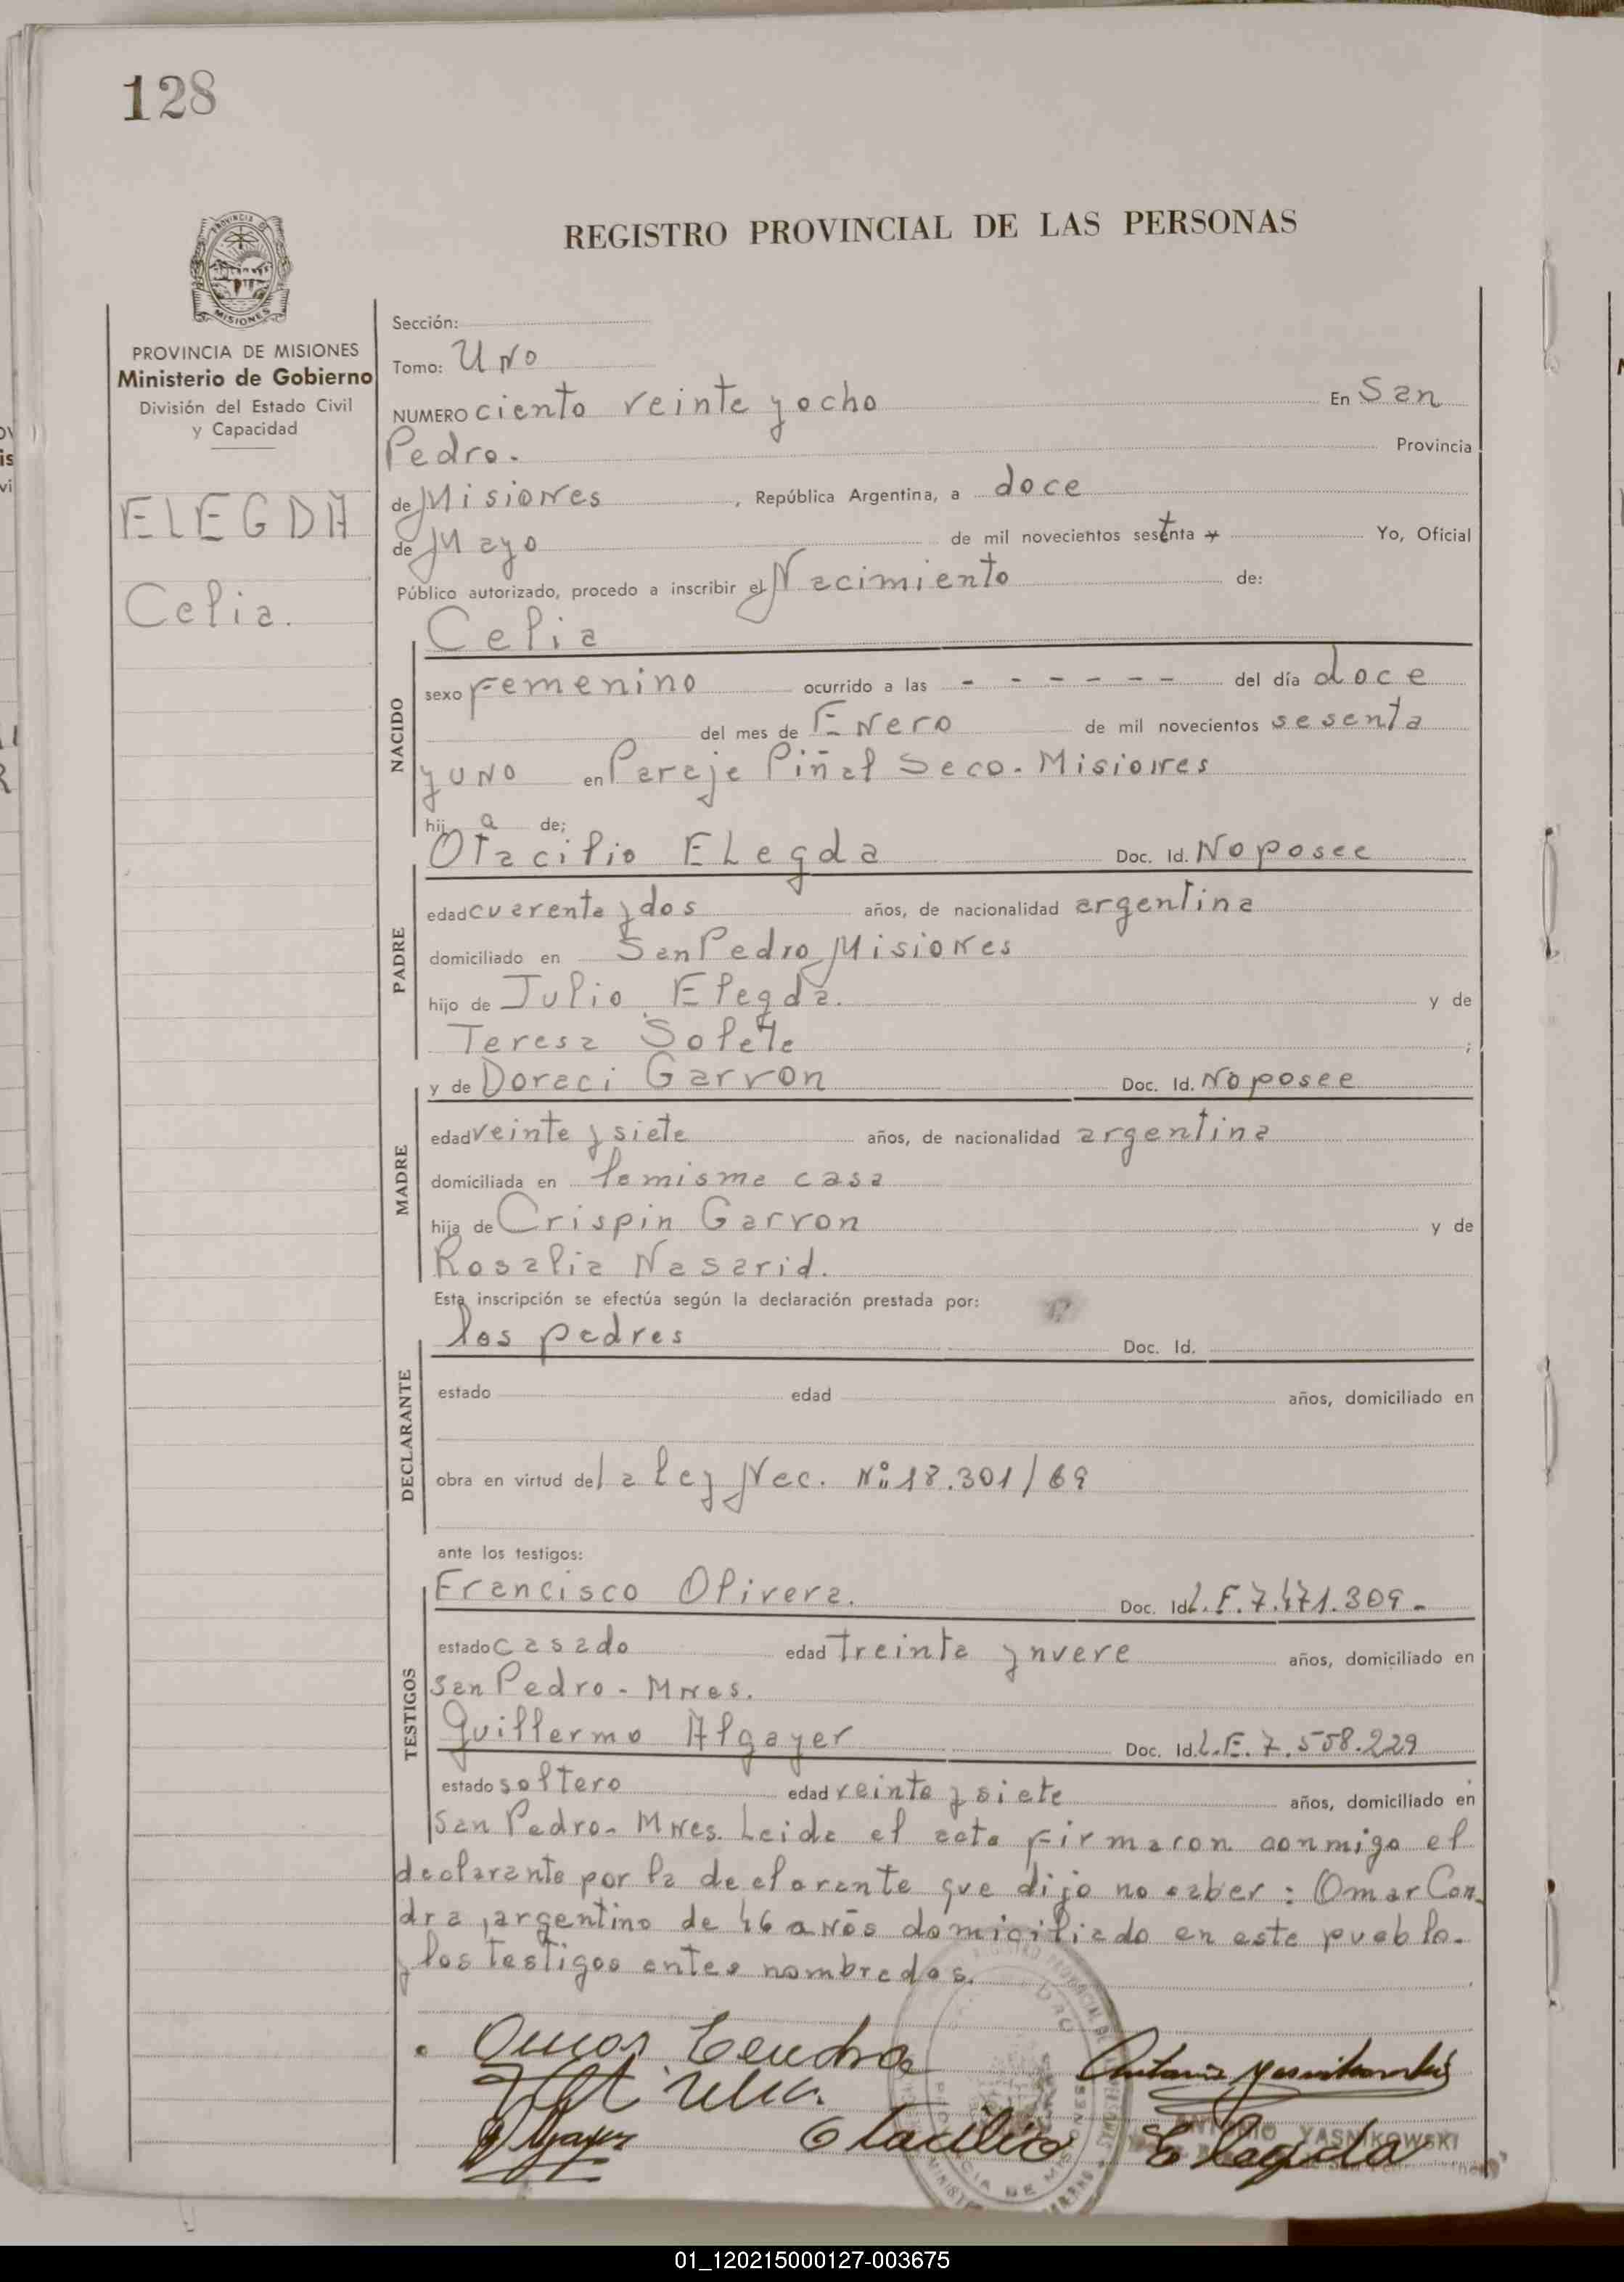 128
REGISTRO PROVINCIAL DE LAS PERSONAS
PROVINCIA
MISIONES
PROVINCIA DE MISIONES
Ministerio de Gobierno
División del Estado Civil
y Capacidad
ELEGDA
Celia.
Sección:
Tomo: UNO
NUMERO ciento veinte y ocho En San
Pedro. Provincia
de Misiones, República Argentina, a doce
de Mayo de mil novecientos setenta Yo, Oficial
Público autorizado, procedo a inscribir el Nacimiento de:
Celia
NACIDO
sexo Femenino ocurrido a las - - - - - - del día doce
del mes de Enero de mil novecientos sesenta
y uno en Paraje Piñal Seco. Misiones
hija de;
Otacilio Elegda Doc. Id. No posee
PADRE
edad cuarenta y dos años, de nacionalidad argentina
domiciliado en San Pedro Misiones
hijo de Julio Elegda. y de
Teresa ;
y de Doraci Garvon Doc. Id. No posee
MADRE
edad veinte y siete años, de nacionalidad argentina
domiciliada en la misma casa
hija de Crispin Garvon y de
Rosalia Nasarid.
Esta inscripción se efectúa según la declaración prestada por:
los padres Doc. Id.
DECLARANTE
estado edad años, domiciliado en
obra en virtud de la ley Nac. Nº 18.301/69
ante los testigos:
Francisco Olivera. Doc. Id. L.E. 7.471.309-
TESTIGOS
estado casado edad treinta y nueve años, domiciliado en
San Pedro - Mnes.
Guillermo Algayer Doc. Id. L.E. 7.558.229
estado soltero edad veinte y siete años, domiciliado en
San Pedro. Mnes. Leida el acta firmaron conmigo el
declarante por la declarante que dijo no saber: Omar Con
dra, argentino de 46 años domiciliado en este pueblo.
y los testigos antes nombrados.
Antonio Yasnikowski
Otacilio Elegda
ANTONIO YASNIKOWSKI
01_120215000127-003675